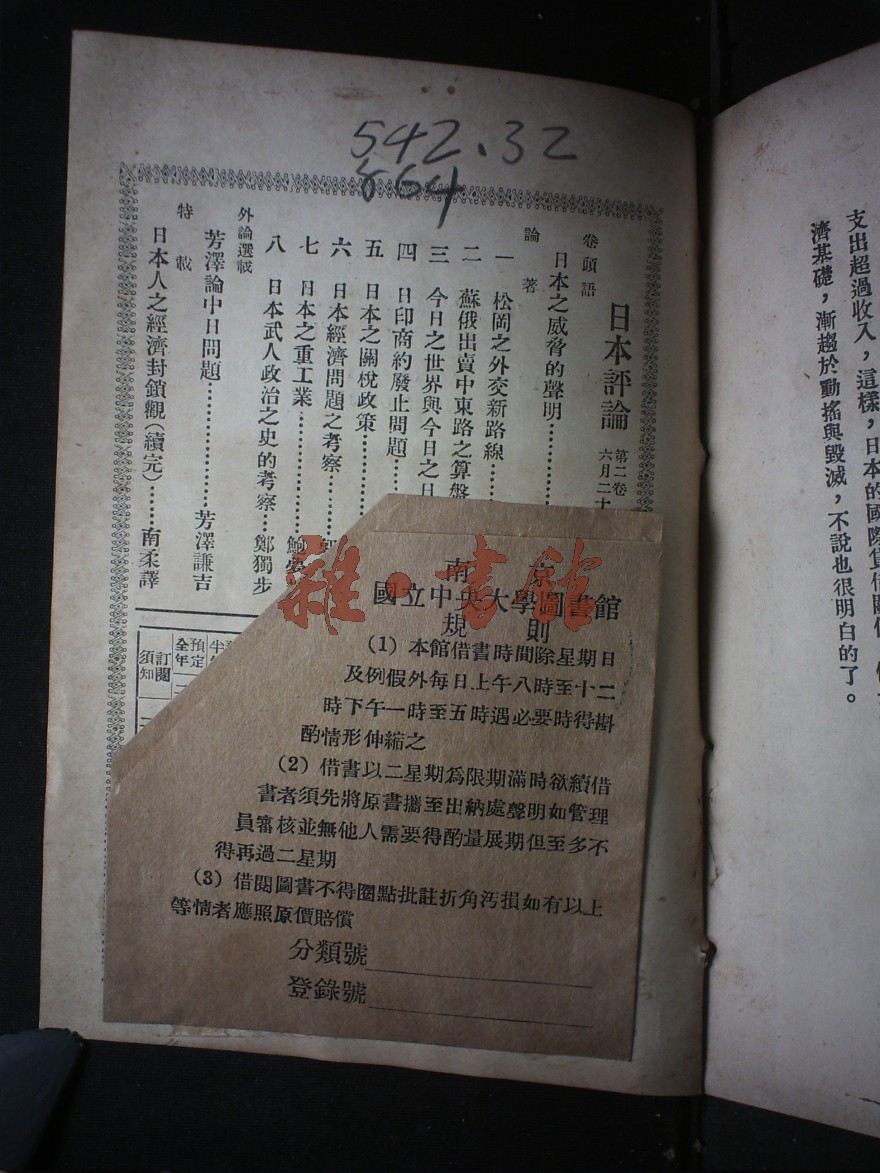 542.32
864
日本評論
第二卷
六月二十
卷頭語
日本之威脅的聲明
論著
一 松岡之外交新路線
二 蘇俄出賣中東路之算盤
三 今日之世界與今日之日
四 日印商約廢止問題
五 日本之關稅政策
六 日本經濟問題之考察
七 日本之重工業
八 日本武人政治之史的考察 鄭獨步
外論選載
芳澤論中日問題 芳澤謙吉
特載
日本人之經濟封鎖觀(續完) 南柔譯
訂閱須知
預定全年
南京
國立中央大學圖書館
規則
(1) 本館借書時間除星期日
及例假外每日上午八時至十二
時下午一時至五時遇必要時得斟
酌情形伸縮之
(2) 借書以二星期爲限期滿時欲續借
書者須先將原書攜至出納處聲明如管理
員審核並無他人需要得酌量展期但至多不
得再過二星期
(3) 借閱圖書不得圈點批註折角汚損如有以上
等情者應照原價賠償
分類號
登錄號
雜·書館
支出超過收入，這樣，日本的國際貸借關係，
濟基礎，漸趨於動搖與毀滅，不說也很明白的了。